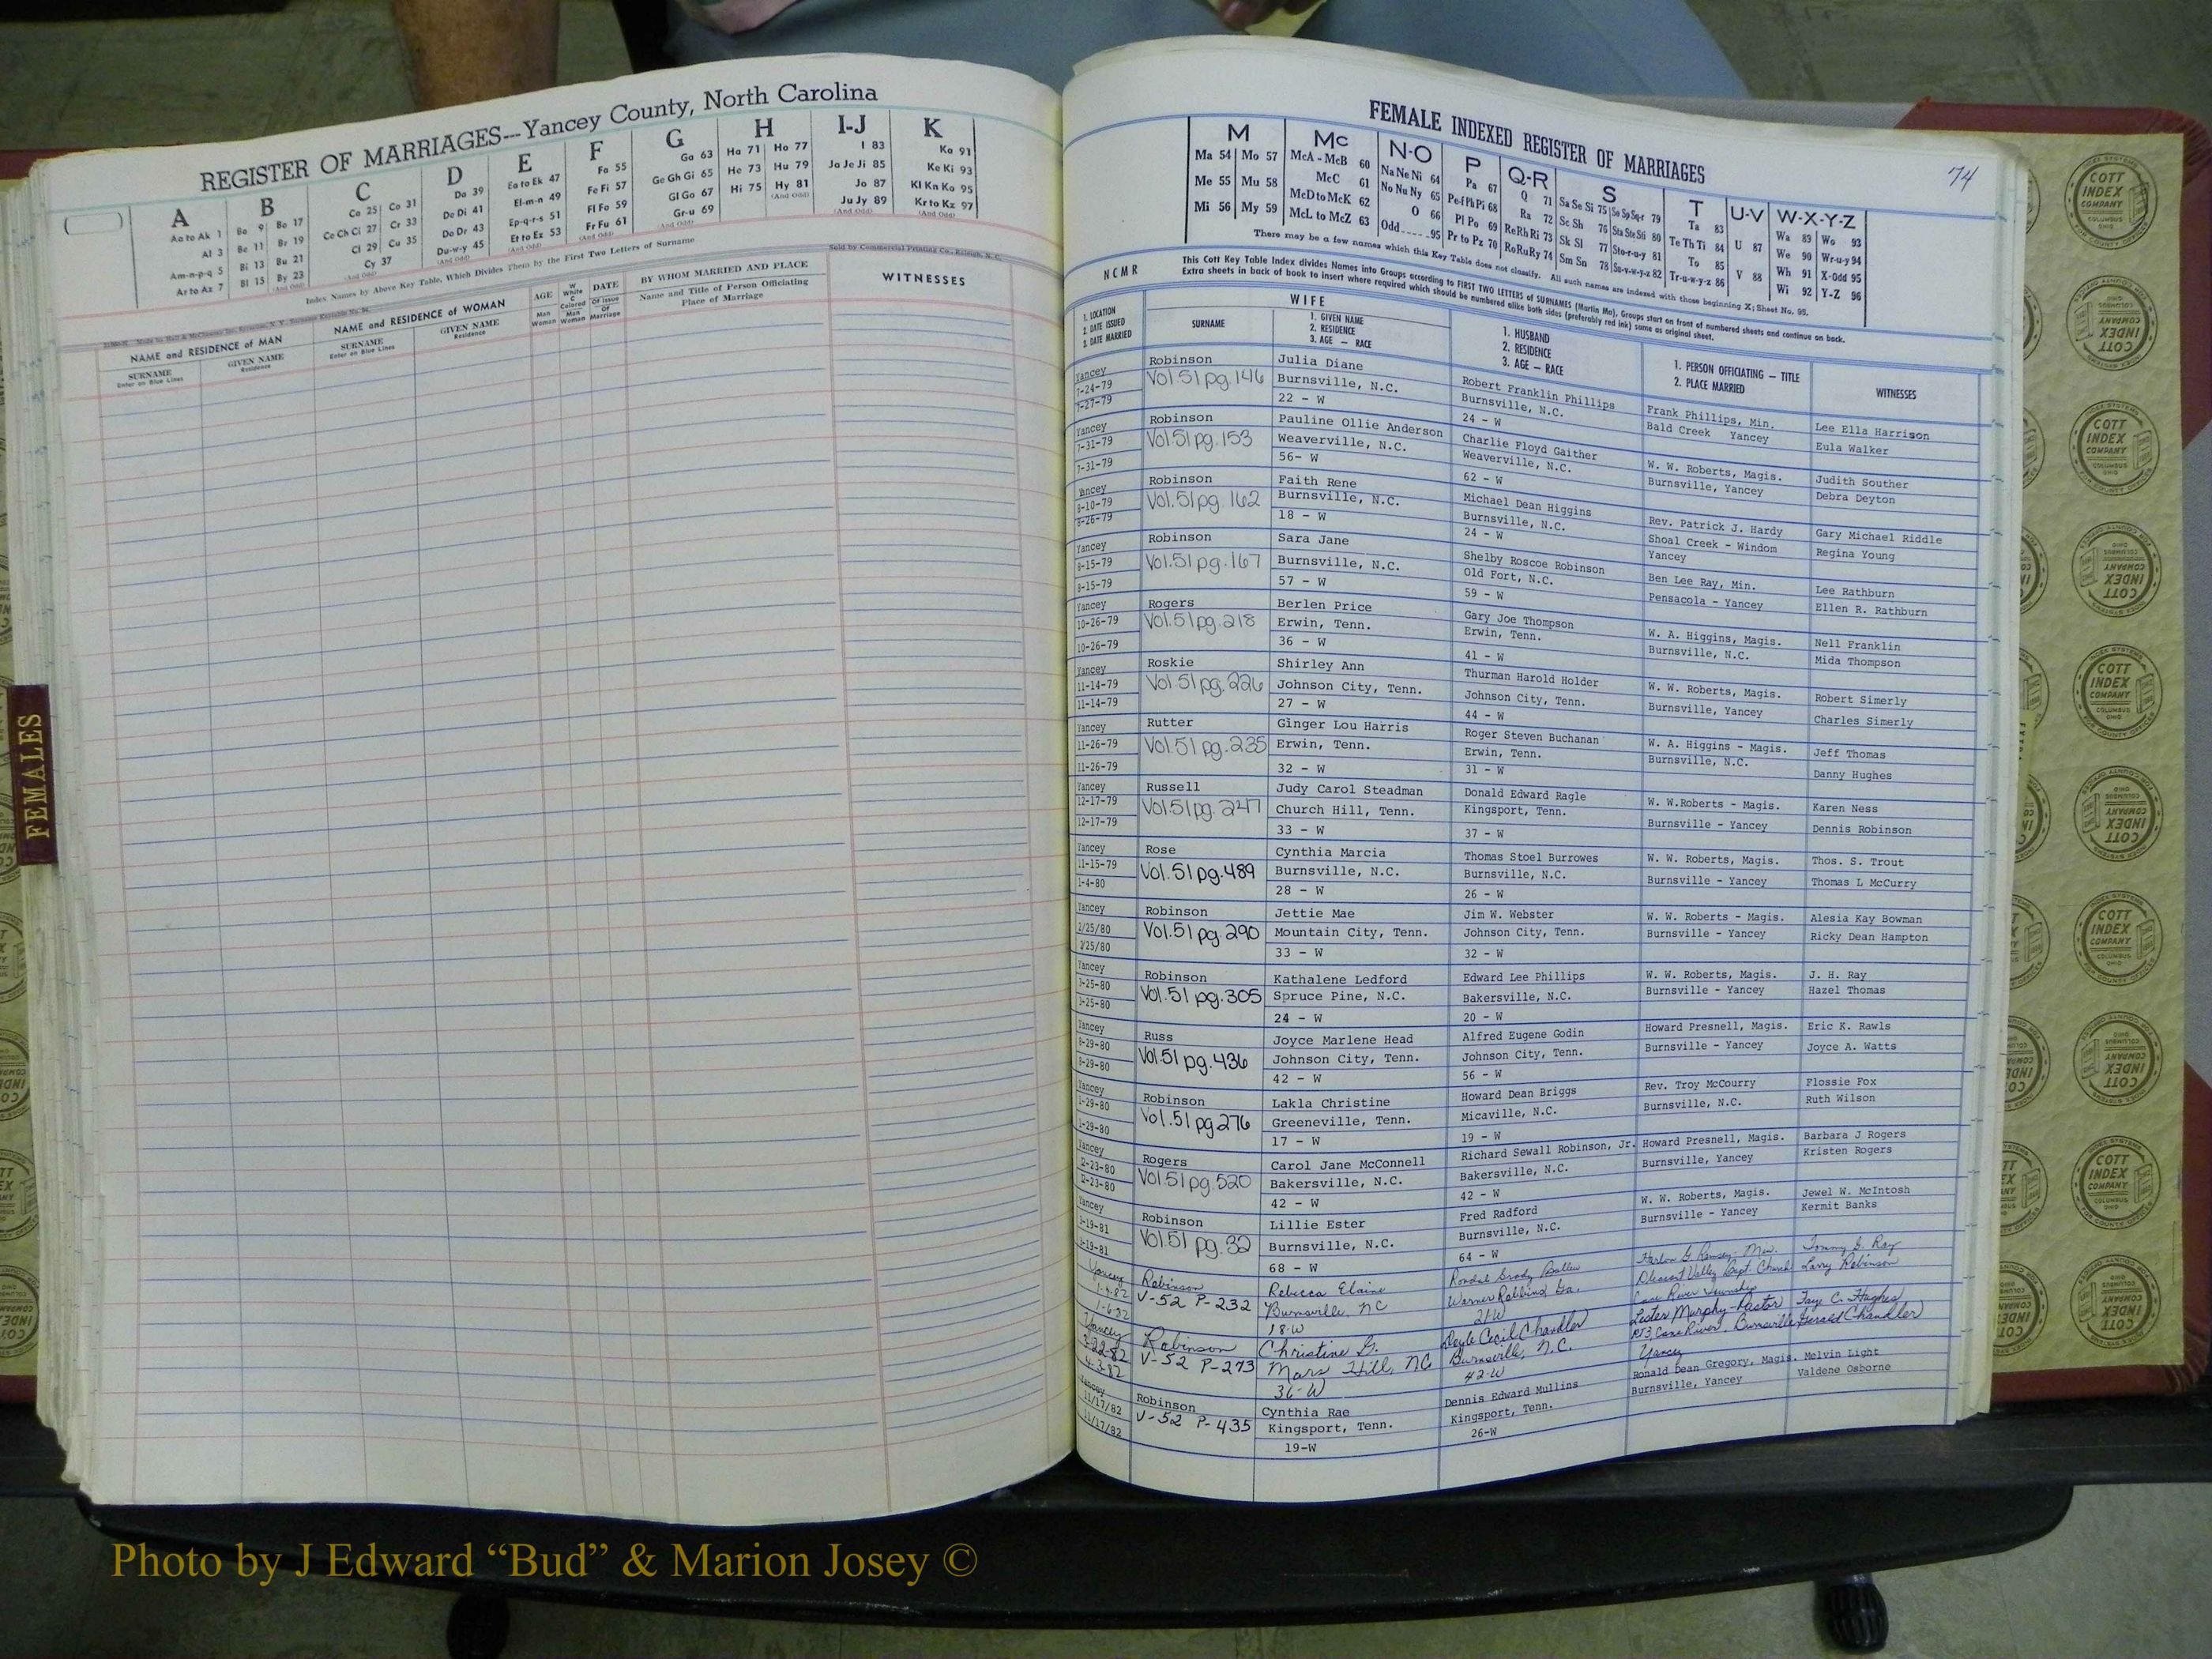 REGISTER OF MARRIAGES---Yancey County, North Carolina
A
Aa to Ak 1
Al 3
Am-n-p-q 5
Ar to Az 7
B
Ba 9 Bo 17
Be 11 Br 19
Bi 13 Bu 21
Bl 15 By 23
(And Odd)
C
Ca 25 Co 31
Ce Ch Ci 27 Cr 33
Cl 29 Cu 35
Cy 37
(And Odd)
D
Da 39
De Di 41
Do Dr 43
Du-w-y 45
(And Odd)
E
Ea to Ek 47
El-m-n 49
Ep-q-r-s 51
Et to Ez 53
(And Odd)
F
Fa 55
Fe Fi 57
Fl Fo 59
Fr Fu 61
(And Odd)
G
Ga 63
Ge Gh Gi 65
Gl Go 67
Gr-u 69
(And Odd)
H
Ha 71 Ho 77
He 73 Hu 79
Hi 75 Hy 81
(And Odd)
I-J
I 83
Ja Je Ji 85
Jo 87
Ju Jy 89
(And Odd)
K
Ka 91
Ke Ki 93
Kl Kn Ko 95
Kr to Kz 97
(And Odd)
Index Names by Above Key Table, Which Divides Them by the First Two Letters of Surname
Sold by Commercial Printing Co., Raleigh, N. C.
NAME and RESIDENCE of MAN
SURNAME
Enter on Blue Lines
GIVEN NAME
Residence
NAME and RESIDENCE of WOMAN
SURNAME
Enter on Blue Lines
GIVEN NAME
Residence
AGE
Man
Woman
W
White
C
Colored
Man
Woman
DATE
Of Issue
Of
Marriage
BY WHOM MARRIED AND PLACE
Name and Title of Person Officiating
Place of Marriage
WITNESSES
FEMALES
FEMALE INDEXED REGISTER OF MARRIAGES
74
M
Ma 54 Mo 57
Me 55 Mu 58
Mi 56 My 59
Mc
McA - McB 60
McC 61
McD to McK 62
McL to McZ 63
N-O
Na Ne Ni 64
No Nu Ny 65
O 66
Odd 95
P
Pa 67
Pe-f Ph Pi 68
Pl Po 69
Pr to Pz 70
Q-R
Q 71
Ra 72
Re Rh Ri 73
Ro Ru Ry 74
S
Sa Se Si 75 So Sp Sq-r 79
Sc Sh 76 Sta Ste Sti 80
Sk Sl 77 Sto-r-u-y 81
Sm Sn 78 Su-v-w-y-z 82
T
Ta 83
Te Th Ti 84
To 85
Tr-u-w-y-z 86
U-V
U 87
V 88
W-X-Y-Z
Wa 89 Wo 93
We 90 Wr-u-y 94
Wh 91 X-Odd 95
Wi 92 Y-Z 96
There may be a few names which this Key Table does not classify. All such names are indexed with those beginning X; Sheet No. 95.
NCMR
This Cott Key Table Index divides Names into Groups according to FIRST TWO LETTERS of SURNAMES (Martin Ma), Groups start on front of numbered sheets and continue on back.
Extra sheets in back of book to insert where required which should be numbered alike both sides (preferably red ink) same as original sheet.
1. LOCATION
2. DATE ISSUED
3. DATE MARRIED
WIFE
SURNAME
1. GIVEN NAME
2. RESIDENCE
3. AGE - RACE
1. HUSBAND
2. RESIDENCE
3. AGE - RACE
1. PERSON OFFICIATING - TITLE
2. PLACE MARRIED
WITNESSES
Yancey Robinson Julia Diane Robert Franklin Phillips Frank Phillips, Min. Lee Ella Harrison
7-24-79 Vol.51 pg.146 Burnsville, N.C. Burnsville, N.C. Bald Creek Yancey Eula Walker
7-27-79 22 - W 24 - W
Yancey Robinson Pauline Ollie Anderson Charlie Floyd Gaither W. W. Roberts, Magis. Judith Souther
7-31-79 Vol.51 pg.153 Weaverville, N.C. Weaverville, N.C. Burnsville, Yancey Debra Deyton
7-31-79 56- W 62 - W
Yancey Robinson Faith Rene Michael Dean Higgins Rev. Patrick J. Hardy Gary Michael Riddle
8-10-79 Vol.51 pg.162 Burnsville, N.C. Burnsville, N.C. Shoal Creek - Windom Regina Young
8-26-79 18 - W 24 - W Yancey
Yancey Robinson Sara Jane Shelby Roscoe Robinson Ben Lee Ray, Min. Lee Rathburn
8-15-79 Vol.51 pg.167 Burnsville, N.C. Old Fort, N.C. Pensacola - Yancey Ellen R. Rathburn
8-15-79 57 - W 59 - W
Yancey Rogers Berlen Price Gary Joe Thompson W. A. Higgins, Magis. Nell Franklin
10-26-79 Vol.51 pg.218 Erwin, Tenn. Erwin, Tenn. Burnsville, N.C. Mida Thompson
10-26-79 36 - W 41 - W
Yancey Roskie Shirley Ann Thurman Harold Holder W. W. Roberts, Magis. Robert Simerly
11-14-79 Vol 51 pg.226 Johnson City, Tenn. Johnson City, Tenn. Burnsville, Yancey Charles Simerly
11-14-79 27 - W 44 - W
Yancey Rutter Ginger Lou Harris Roger Steven Buchanan W. A. Higgins - Magis. Jeff Thomas
11-26-79 Vol.51 pg.235 Erwin, Tenn. Erwin, Tenn. Burnsville, N.C. Danny Hughes
11-26-79 32 - W 31 - W
Yancey Russell Judy Carol Steadman Donald Edward Ragle W. W.Roberts - Magis. Karen Ness
12-17-79 Vol.51 pg. 247 Church Hill, Tenn. Kingsport, Tenn. Burnsville - Yancey Dennis Robinson
12-17-79 33 - W 37 - W
Yancey Rose Cynthia Marcia Thomas Stoel Burrowes W. W. Roberts, Magis. Thos. S. Trout
11-15-79 Vol. 51 pg.489 Burnsville, N.C. Burnsville, N.C. Burnsville - Yancey Thomas L McCurry
1-4-80 28 - W 26 - W
Yancey Robinson Jettie Mae Jim W. Webster W. W. Roberts - Magis. Alesia Kay Bowman
2/25/80 Vol.51 pg 290 Mountain City, Tenn. Johnson City, Tenn. Burnsville - Yancey Ricky Dean Hampton
2/25/80 33 - W 32 - W
Yancey Robinson Kathalene Ledford Edward Lee Phillips W. W. Roberts, Magis. J. H. Ray
3-25-80 Vol.51 pg.305 Spruce Pine, N.C. Bakersville, N.C. Burnsville - Yancey Hazel Thomas
3-25-80 24 - W 20 - W
Yancey Russ Joyce Marlene Head Alfred Eugene Godin Howard Presnell, Magis. Eric K. Rawls
8-29-80 Vol.51 pg.436 Johnson City, Tenn. Johnson City, Tenn. Burnsville - Yancey Joyce A. Watts
8-29-80 42 - W 56 - W
Yancey Robinson Lakla Christine Howard Dean Briggs Rev. Troy McCourry Flossie Fox
1-29-80 Vol.51 pg276 Greeneville, Tenn. Micaville, N.C. Burnsville, N.C. Ruth Wilson
1-29-80 17 - W 19 - W
Yancey Rogers Carol Jane McConnell Richard Sewall Robinson, Jr. Howard Presnell, Magis. Barbara J Rogers
12-23-80 Vol.51 pg.520 Bakersville, N.C. Bakersville, N.C. Burnsville, Yancey Kristen Rogers
12-23-80 42 - W 42 - W
Yancey Robinson Lillie Ester Fred Radford W. W. Roberts, Magis. Jewel W. McIntosh
-19-81 Vol.51 pg.32 Burnsville, N.C. Burnsville, N.C. Burnsville - Yancey Kermit Banks
-19-81 68 - W 64 - W
Yancey Robinson Rebecca Elaine Rondal Grady Ballew Harlon G. Ramsey, Min. Tommy G. Ray
V-52 P-232 Burnsville, NC Warner Robbins, Ga. Pleasant Valley Bapt. Church Larry Robinson
1-6-82 18-W 21-W Cane River Township
Yancey Robinson Christine G. Doyle Cecil Chandler Lester Murphy-Pastor Faye C. Hughes
3-22-82 V-52 P-273 Mars Hill, NC Burnsville, N.C. Rt 3, Cane River, Burnsville Gerald Chandler
4-3-82 36-W 42-W Yancey
Yancey Robinson Cynthia Rae Dennis Edward Mullins Ronald Dean Gregory, Magis. Melvin Light
11/17/82 V-52 P-435 Kingsport, Tenn. Kingsport, Tenn. Burnsville, Yancey Valdene Osborne
11/17/82 19-W 26-W
COTT
INDEX
COMPANY
COLUMBUS
OHIO
Photo by J Edward “Bud” & Marion Josey ©